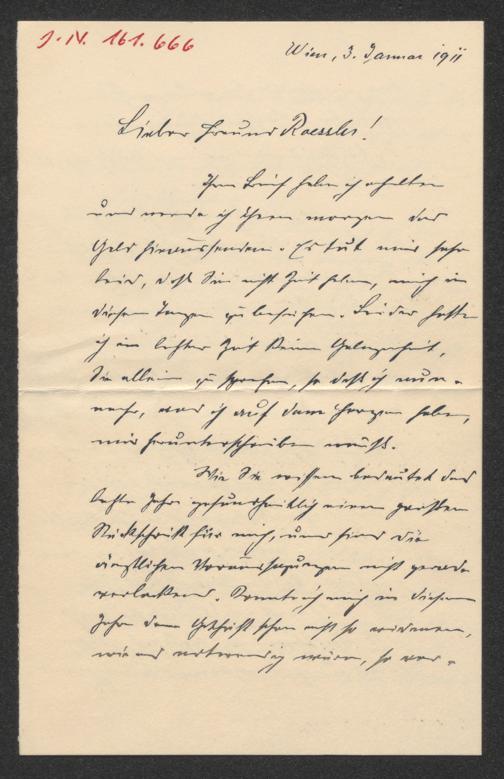 J. N. 161.666
Wien, 3. Januar 1911
Lieber Freund Roessler!
Ihren Brief habe ich erhalten
und werde ich Ihnen morgen das
Geld hinaussenden. Es tut mir sehr
leid, daß Sie nicht Zeit haben, mich in
diesen Tagen zu besuchen. Leider hatte
ich in letzter Zeit keine Gelegenheit,
Sie allein zu sprechen, so daß ich nun-
mehr, was ich auf dem Herzen habe,
mir herunterschreiben muß.
Wie Sie wissen bedeutet das
letzte Jahr gesundheitlich einen großen
Rückschritt für mich, und sind die
ärztlichen Voraussagungen nicht gerade
verlockend. Konnte ich mich in diesem
Jahr dem Geschäft schon nicht so widmen,
wie es notwendig wäre, so wer-